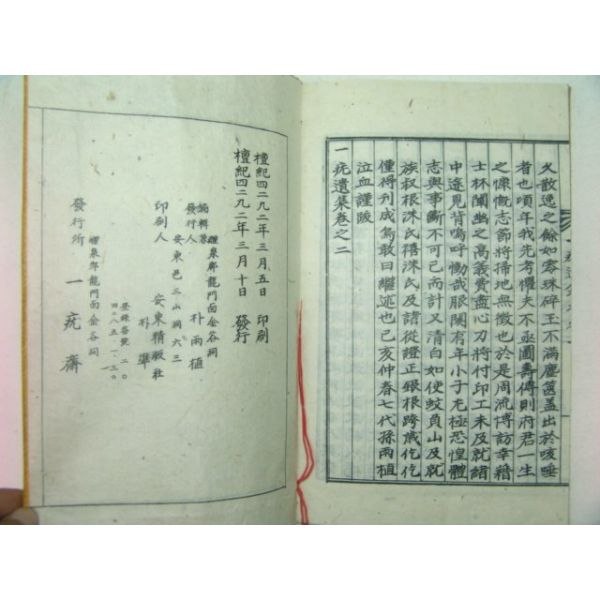 久散逸之餘如零珠碎玉不滿塵篋盖出於咳唾
者也頃年我先考懼夫不亟圖壽傳則府君一生
之慷慨志節將掃地無徵也於是周流博訪幸稽
士林闡幽之高義賣盡心力將付印工未及就緖
中途見背嗚呼慟哉服闋有年小子尤極恐惶體
志與事斷不可已而計又清白如使蚊負山及就
族叔根洙氏禧洙氏及諸從證正銀根跨歲仡仡
僅得刊成焉敢曰繼述也已亥仲春七代孫兩植
泣血謹跋
一疣遺集卷之二
檀紀四二九二年三月五日 印刷
檀紀四二九二年三月十日 發行
醴泉郡龍門面金谷洞
編輯兼
發行人 朴兩植
安東邑三山洞六三
印刷人 安東精版社
朴準
登錄番號 二〇
四二八五、一、三〇
醴泉郡龍門面金谷洞
發行所 一疣齋